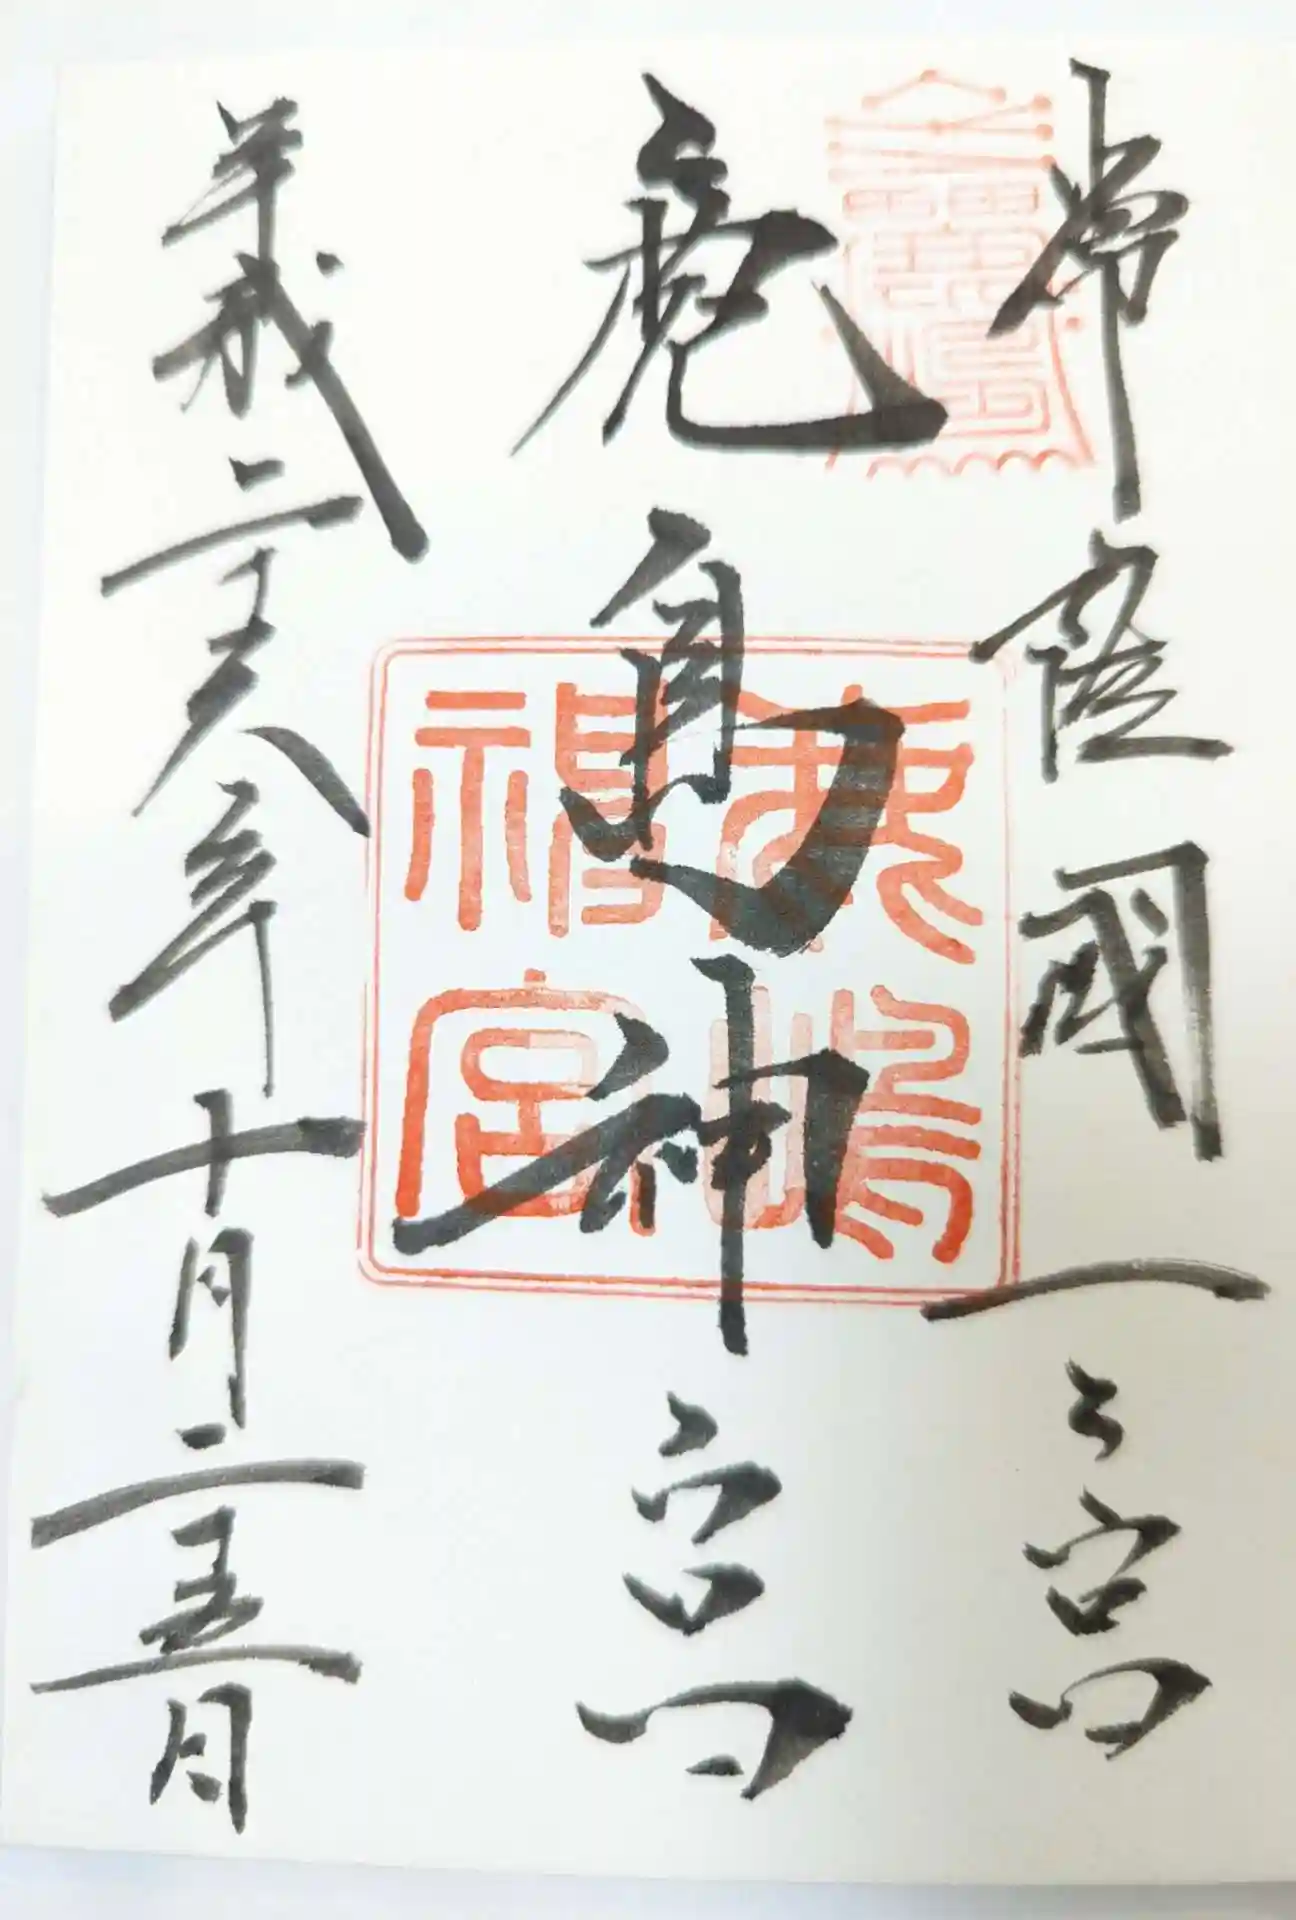 常陸國一之宮
鹿島神宮
平成二十八年十月二十五日
鹿嶋神宮